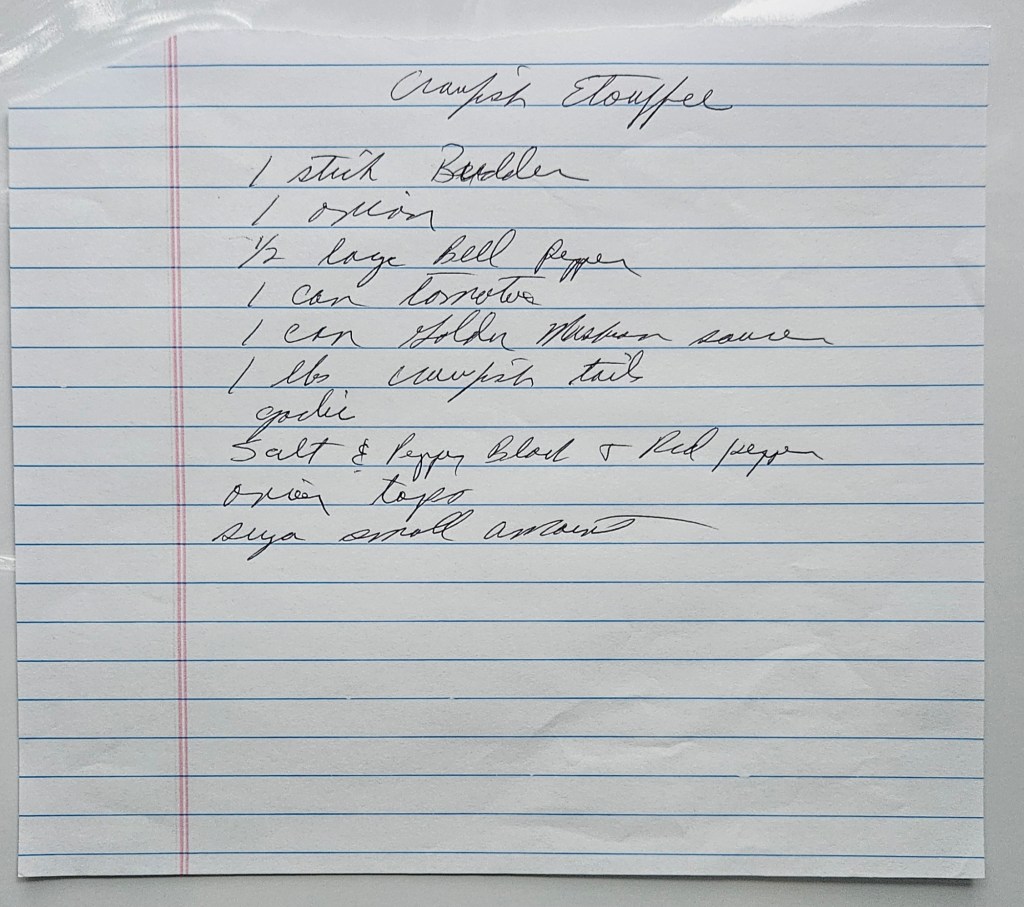 Crawfish Etouffee
1 stick Budder
1 onion
1/2 large Bell Pepper
1 can tomatoes
1 can Golden Mushroom sauce
1 lbs crawfish tails
garlic
Salt & Pepper Black & Red pepper
onion tops
small amount